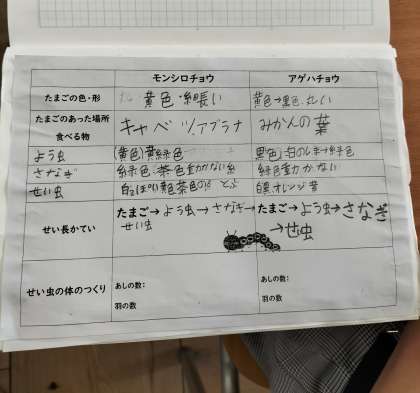 モンシロチョウ アゲハチョウ
たまごの色・形 黄色・細長い 黄色→黒色、丸い
たまごのあった場所
食べる物 キャベツ、アブラナ みかんの葉
よう虫 (黄色)黄緑色 黒色)白のしま→緑色
さなぎ 緑色、茶色動かない糸 緑色動かない
せい虫 白っぽい黄色茶色の とぶ 白黒オレンジ青
せい長かてい たまご→よう虫→さなぎ→ たまご→よう虫→さなぎ
せい虫 →せい虫
せい虫の体のつくり あしの数: あしの数:
羽の数 羽の数